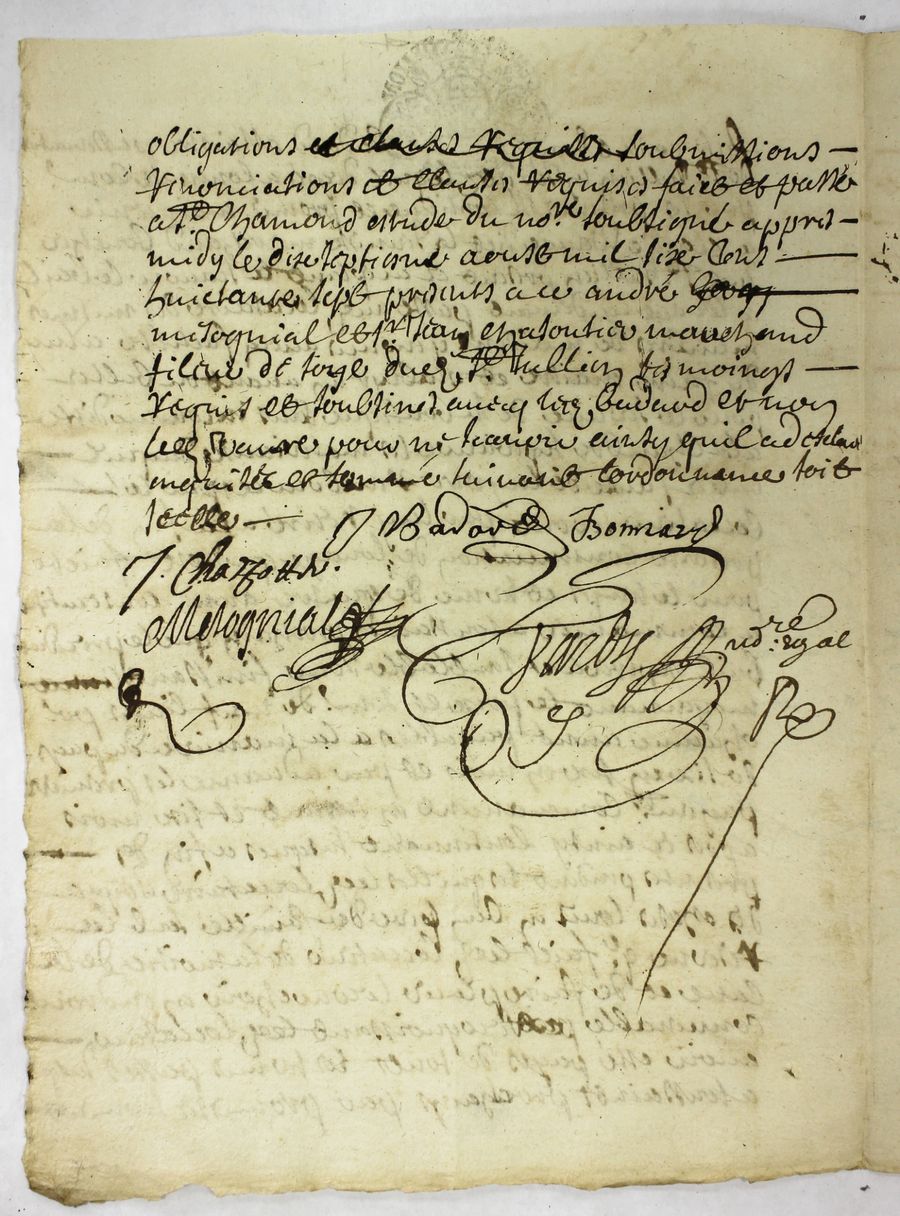 obligations et clauses requises soubmissions —
renonciations et clauses requises faict et passé
a St Chamond estude du no.re soubsigné appres —
midy le dixseptiesme aoust mil six cens —
huictante sept presents a ce andré
metognial et Sr Jean chatoutier marchand
fileur de soye dud. St Jullien tesmoings —
requis et soubsinés avecq led. badard et non
led. pour ne scavoir ainsy quil a desclaré
enquis et sommé suivant lordonnance soit
J Badard Bonnard
J. Chazotte.
Metognial
Pardy no.re royal